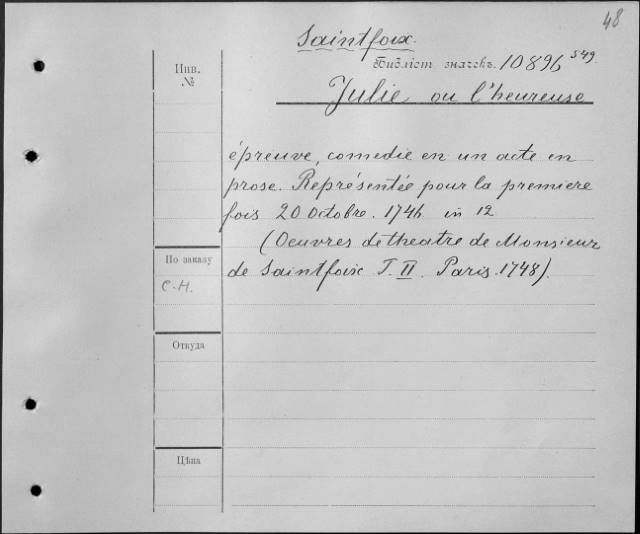 48
Saintfoix.
Библіот. значекъ. 10896 549
Инв.
№
Julie ou l'heureuse
épreuve, comedie en un acte en
prose. Représentée pour la premiere
fois 20 Octobre. 1746. in 12
(Oeuvres de theatre de Monsieur
de Saintfoix T. II. Paris. 1748).
По заказу
С.Н.
Откуда
Цѣна